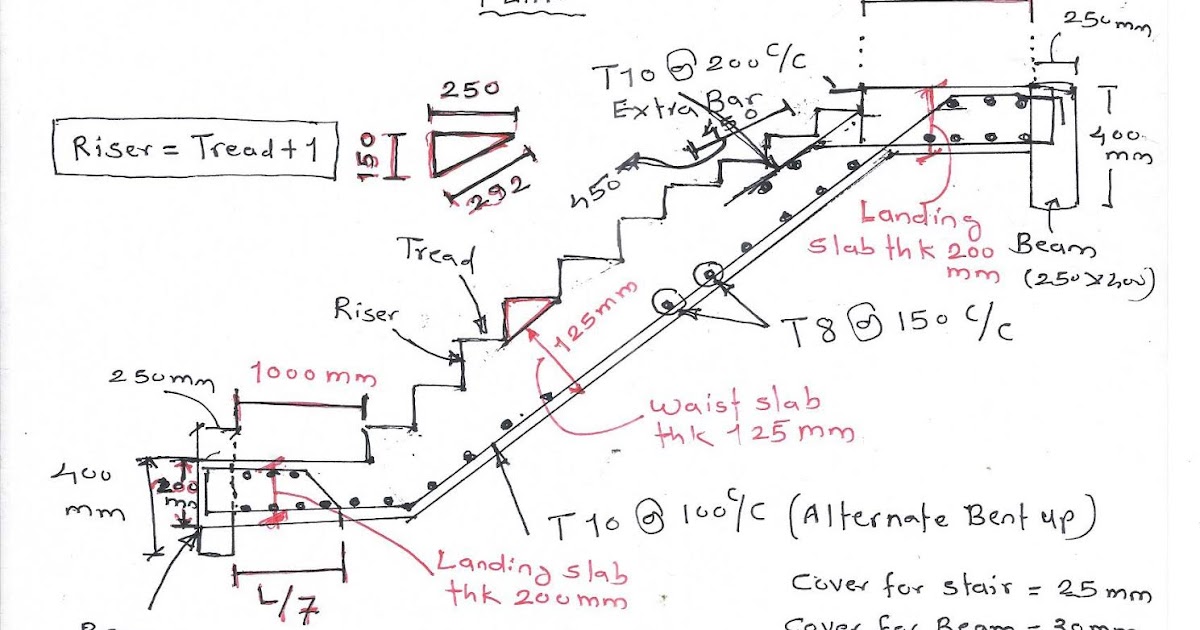 250mm
T10 @ 200 C/C
Extra Bar
250
Riser = Tread + 1
150
292
450
450
400
mm
Landing
slab thk 200
mm
Beam
(250x400)
Tread
Riser
125mm
T8 @ 150 C/C
250mm
1000mm
waist slab
thk 125mm
400
mm
200
mm
T10 @ 100 C/C (Alternate Bent up)
Landing slab
thk 200mm
L/7
Cover for stair = 25 mm
Cover for Beam = 30mm